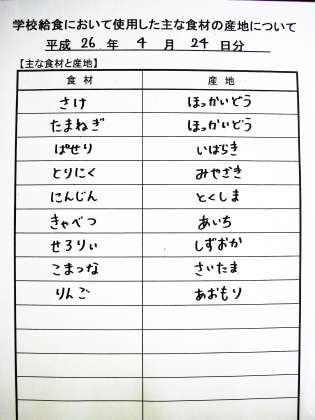 学校給食において使用した主な食材の産地について
平成 26 年 4 月 24 日分
【主な食材と産地】
食材 産地
さけ ほっかいどう
たまねぎ ほっかいどう
ぱせり いばらき
とりにく みやざき
にんじん とくしま
きゃべつ あいち
せろりぃ しずおか
こまつな さいたま
りんご あおもり